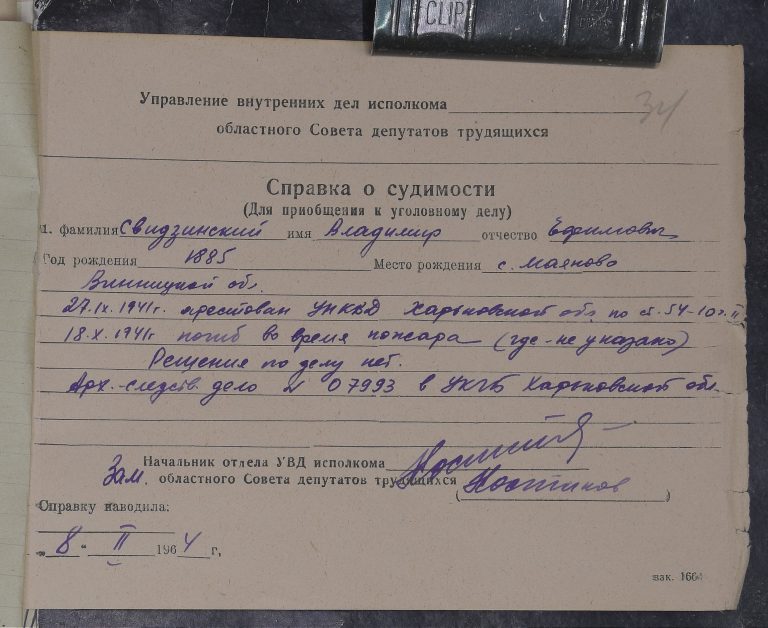 CLIP
34
Управление внутренних дел исполкома
областного Совета депутатов трудящихся
Справка о судимости
(Для приобщения к уголовному делу)
1. фамилия Свидзинский имя Владимир отчество Ефимович
Год рождения 1885 Место рождения с. Маяново
Винницкой обл.
27.IX.1941г. арестован УНКВД Харьковской обл по ст. 54-10 ч. II
18.X.1941г погиб во время пожара (где-не указано)
Решения по делу нет.
Арх.-следств. дело N 07993 в УКГБ Харьковской обл.
Начальник отдела УВД исполкома
Зам. областного Совета депутатов трудящихся
(Костиков)
Справку наводила:
„8" II 1964 г,
зак. 1664